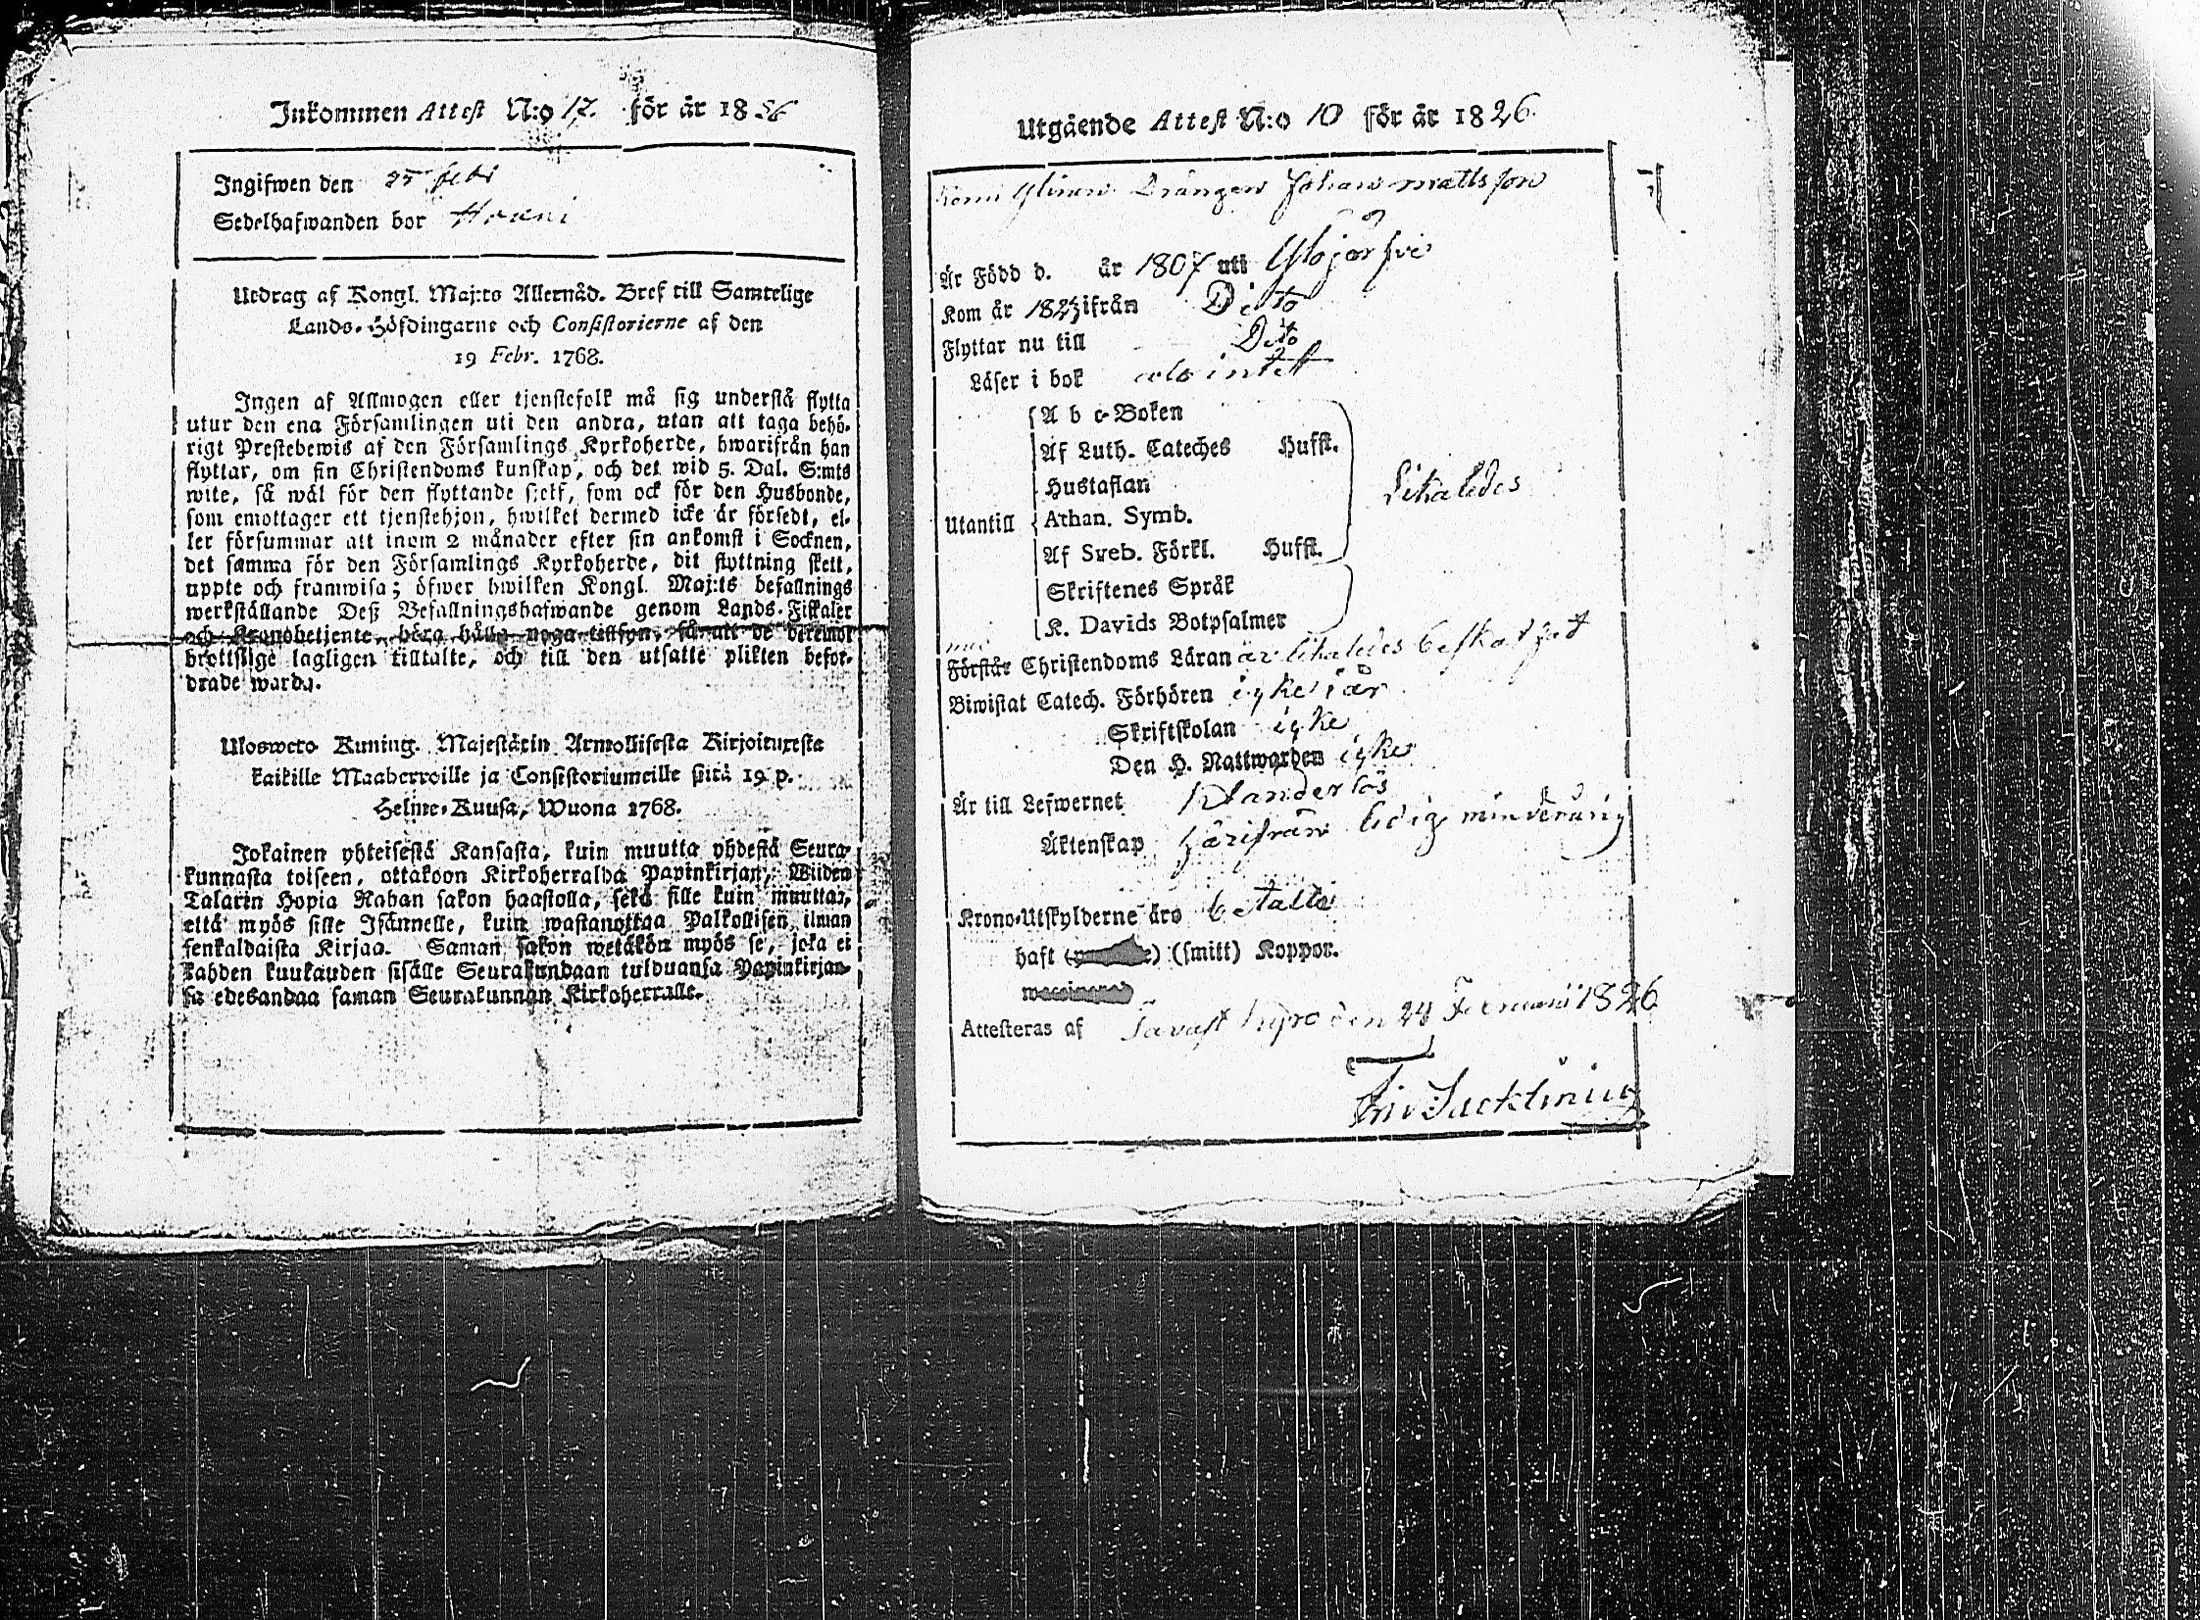 Inkommen Attest N:o 17. för år 1826
Ingifwen den 25 febr
Sedelhafwanden bor
Utdrag af Kongl. Maj:ts Allernåd. Bref till Samtelige
Lands-Höfdingarne och Consistorierne af den
19 Febr. 1768.
Ingen af Allmogen eller tjenstefolk må sig understå flytta
utur den ena Församlingen uti den andra, utan att taga behö-
rigt Prestebewis af den Församlings Kyrkoherde, hwarifrån han
flyttar, om sin Christendoms kunskap, och det wid 5. Dal. S:mts
wite, så wäl för den flyttande sjelf, som ock för den Husbonde,
som emottager ett tjenstehjon, hwilket dermed icke är försedt, el-
ler försummar att inom 2 månader efter sin ankomst i Socknen,
det samma för den Församlings Kyrkoherde, dit flyttning skett,
uppte och framwisa; öfwer hwilken Kongl. Maj:ts befallnings
werkställande Deß Befallningshafwande genom Lands-Fiskaler
och Kronobetjente böra hålla noga tillsyn, så att de deremot
brottslige lagligen tilltalte, och till den utsatte plikten befor-
drade warda.
Ulosweto Kuning. Majestätin Armollisesta Kirjoituxesta
kaikille Maaherroille ja Consistoriumeille siitä 19 p.
Helme-Kuusa, Wuona 1768.
Jokainen yhteisestä Kansasta, kuin muutta yhdestä Seura-
kunnasta toiseen, ottakoon Kirkoherralda Papinkirjan, Wiiden
Talarin Hopia Rahan sakon haastolla, sekä sille kuin muuttaa,
että myös sille Isännelle, kuin wastanottaa Palkollisen ilman
senkaldaista Kirjaa. Saman sakon wetäkön myös se, joka ei
kahden kuukauden sisälle Seurakundaan tulduansa Papinkirjan-
sa edesandaa saman Seurakunnan Kirkoherralle.
Utgående Attest N:o 10 för år 1826.
Drängen Johan Mattsson
Är Född d. år 1807 uti Ylöjärfvi
Kom år 1823 ifrån Dito
Flyttar nu till Dito
Läser i bok alsintet
A b c-Boken
Af Luth. Cateches Hufst.
Hustaflan
Utantill Athan. Symb. Likaledes
Af Sveb. Förkl. Hufst.
Skriftenes Språk
K. Davids Botpsalmer
med
Förstår Christendoms Läran är likaledes beskaffat
Biwistat Catech. Förhören icke i år
Skriftskolan icke
Den H. Nattwarden icke
Är till Lefwernet klanderlös
Äktenskap härifrån ledig minderårig
Krono-Utskylderne äro betalte
haft (smitt) Koppor.
Attesteras af Tavast kyro den 24 Februarii 1826